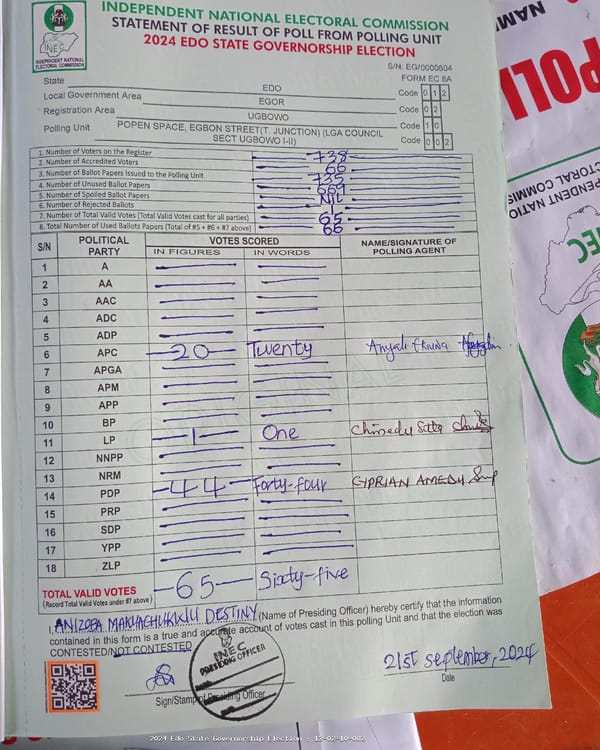 INDEPENDENT NATIONAL ELECTORAL COMMISSION
STATEMENT OF RESULT OF POLL FROM POLLING UNIT
2024 EDO STATE GOVERNORSHIP ELECTION
INEC
INDEPENDENT NATIONAL ELECTORAL COMMISSION
S/N: EG/0000604
FORM EC 8A
State EDO Code 0 1 2
Local Government Area EGOR Code 0 2
Registration Area UGBOWO Code 1 0
Polling Unit POPEN SPACE, EGBON STREET(T. JUNCTION) (LGA COUNCIL SECT UGBOWO I-II) Code 0 0 2
1. Number of Voters on the Register 738
2. Number of Accredited Voters 66
3. Number of Ballot Papers Issued to the Polling Unit 735
4. Number of Unused Ballot Papers 669
5. Number of Spoiled Ballot Papers Nil
6. Number of Rejected Ballots 1
7. Number of Total Valid Votes (Total Valid Votes cast for all parties) 65
8. Total Number of Used Ballots Papers (Total of #5 + #6 + #7 above) 66
S/N POLITICAL PARTY VOTES SCORED NAME/SIGNATURE OF POLLING AGENT
IN FIGURES IN WORDS
1 A
2 AA
3 AAC
4 ADC
5 ADP
6 APC 20 Twenty
7 APGA
8 APM
9 APP
10 BP
11 LP 1 One Chinedu
12 NNPP
13 NRM
14 PDP 44 Forty-four CYPRIAN AMEDU
15 PRP
16 SDP
17 YPP
18 ZLP
TOTAL VALID VOTES 65 Sixty-five
(Record Total Valid Votes under #7 above)
I, ANIZOBA DESTINY (Name of Presiding Officer) hereby certify that the information
contained in this form is a true and accurate account of votes cast in this polling Unit and that the election was
CONTESTED/NOT CONTESTED
INEC
PRESIDING OFFICER
21st September, 2024
Sign/Stamp of Presiding Officer
Date
2024 Edo State Governorship Election : 12-02-10-002